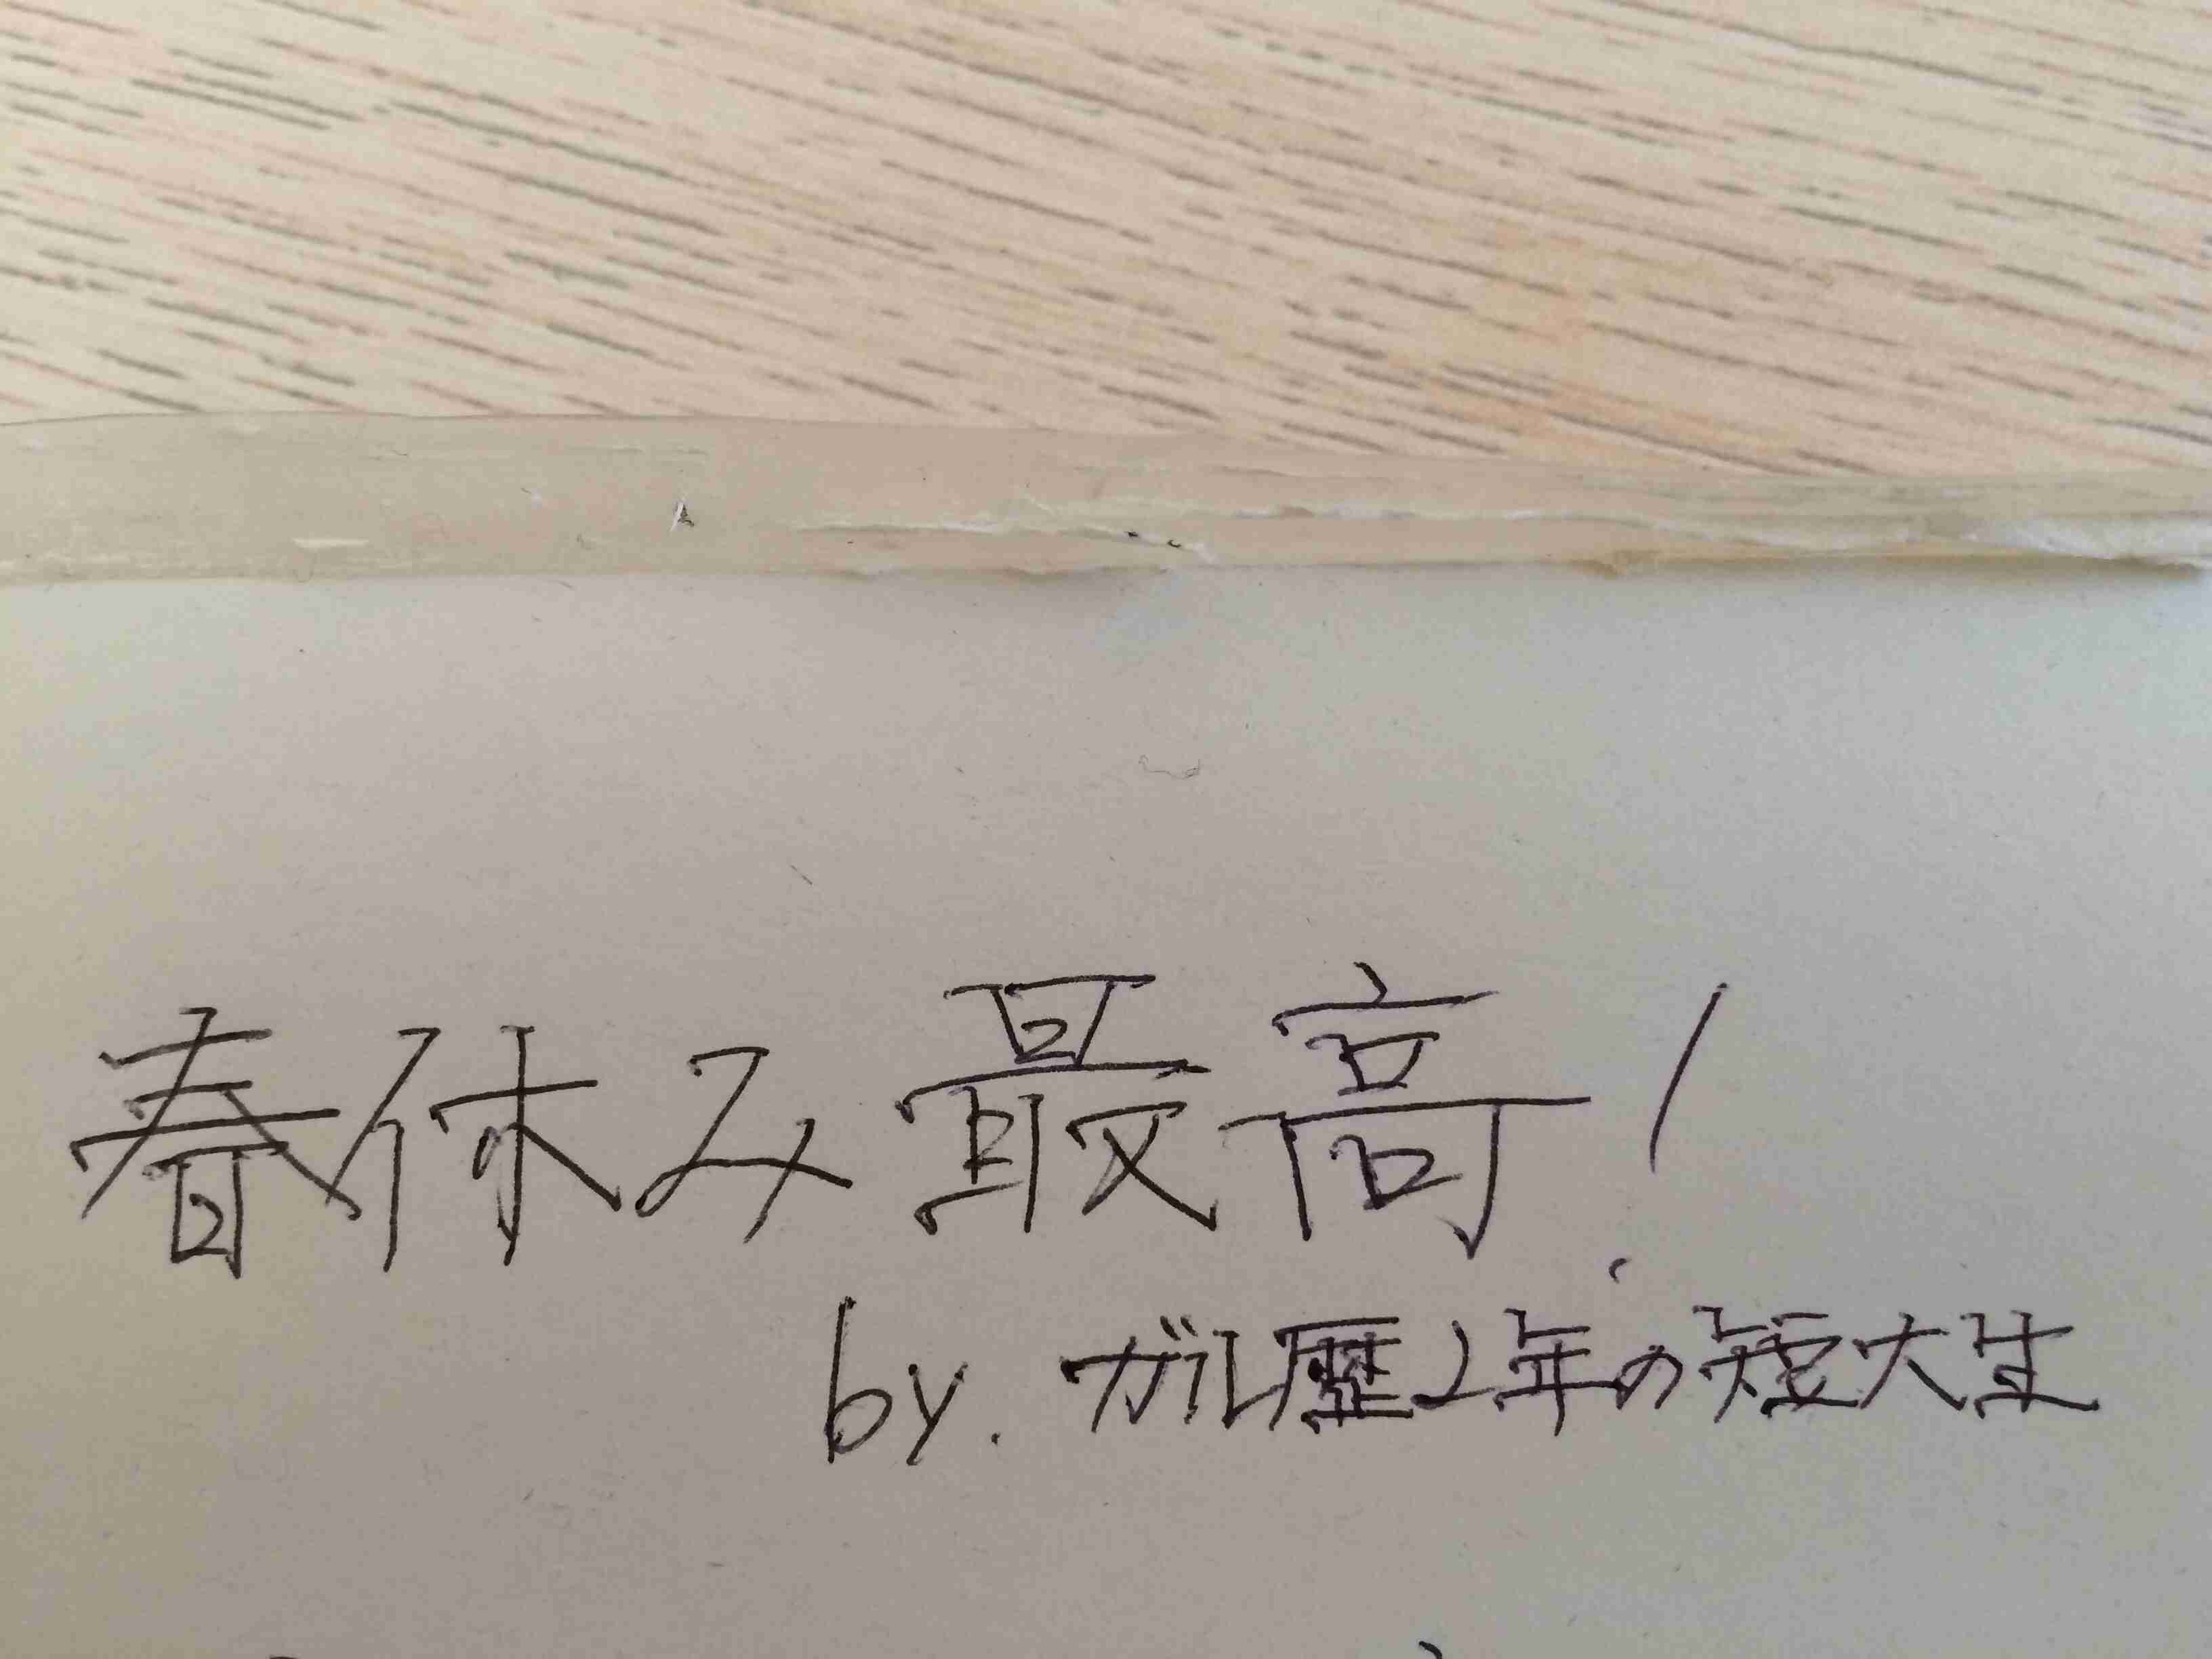 春休み最高!
by. ガル歴2年の短大生